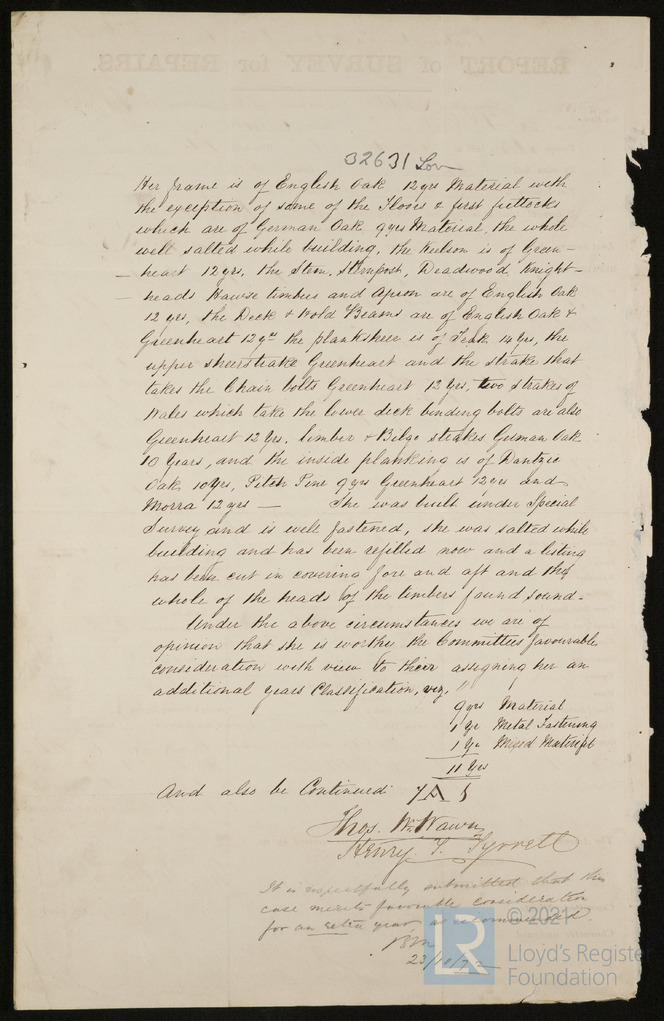 REPORT of SURVEY for REPAIRS.
32631 Lon
Her frame is of English Oak 12 yrs Material with
the exception of some of the Floors & first futtocks
which are of German Oak 9 yrs Material, the whole
well salted while building, the Keelson is of Green-
heart 12 yrs, the Stem, Sternpost, Deadwood, Knight-
heads Hawse timbers and Apron are of English Oak
12 yrs, the Deck & Hold Beams are of English Oak &
Greenheart 12 yrs the planksheer is of Teak 14 yrs, the
upper sheerstrake Greenheart and the strake that
takes the Chain bolts Greenheart 12 yrs, two strakes of
Wales which take the lower deck binding bolts are also
Greenheart 12 Yrs. limber & Bilge strakes German Oak
10 Years, and the inside planking is of Dantzic
Oak 10 yrs, Pitch Pine 9 yrs Greenheart 12 yrs and
Morra 12 yrs — She was built under Special
Survey and is well fastened, she was salted while
building and has been refilled now and a listing
has been cut in covering fore and aft and the
whole of the heads of the timbers found sound.
Under the above circumstances we are of
opinion that she is worthy the Committees favourable
consideration with view to their assigning her an
additional years Classification, viz. "
9 yrs Material
1 Yr Metal Fastening
1 Yr Mixed Material
11 Yrs
And also be Continued A 1
Thos. Wm. Wawn
Henry T. Tyrrell
It is respectfully submitted that this
case merits favorable consideration
for an extra year, as recommended.
23/10/72
© 2021
LR
Lloyd's Register
Foundation